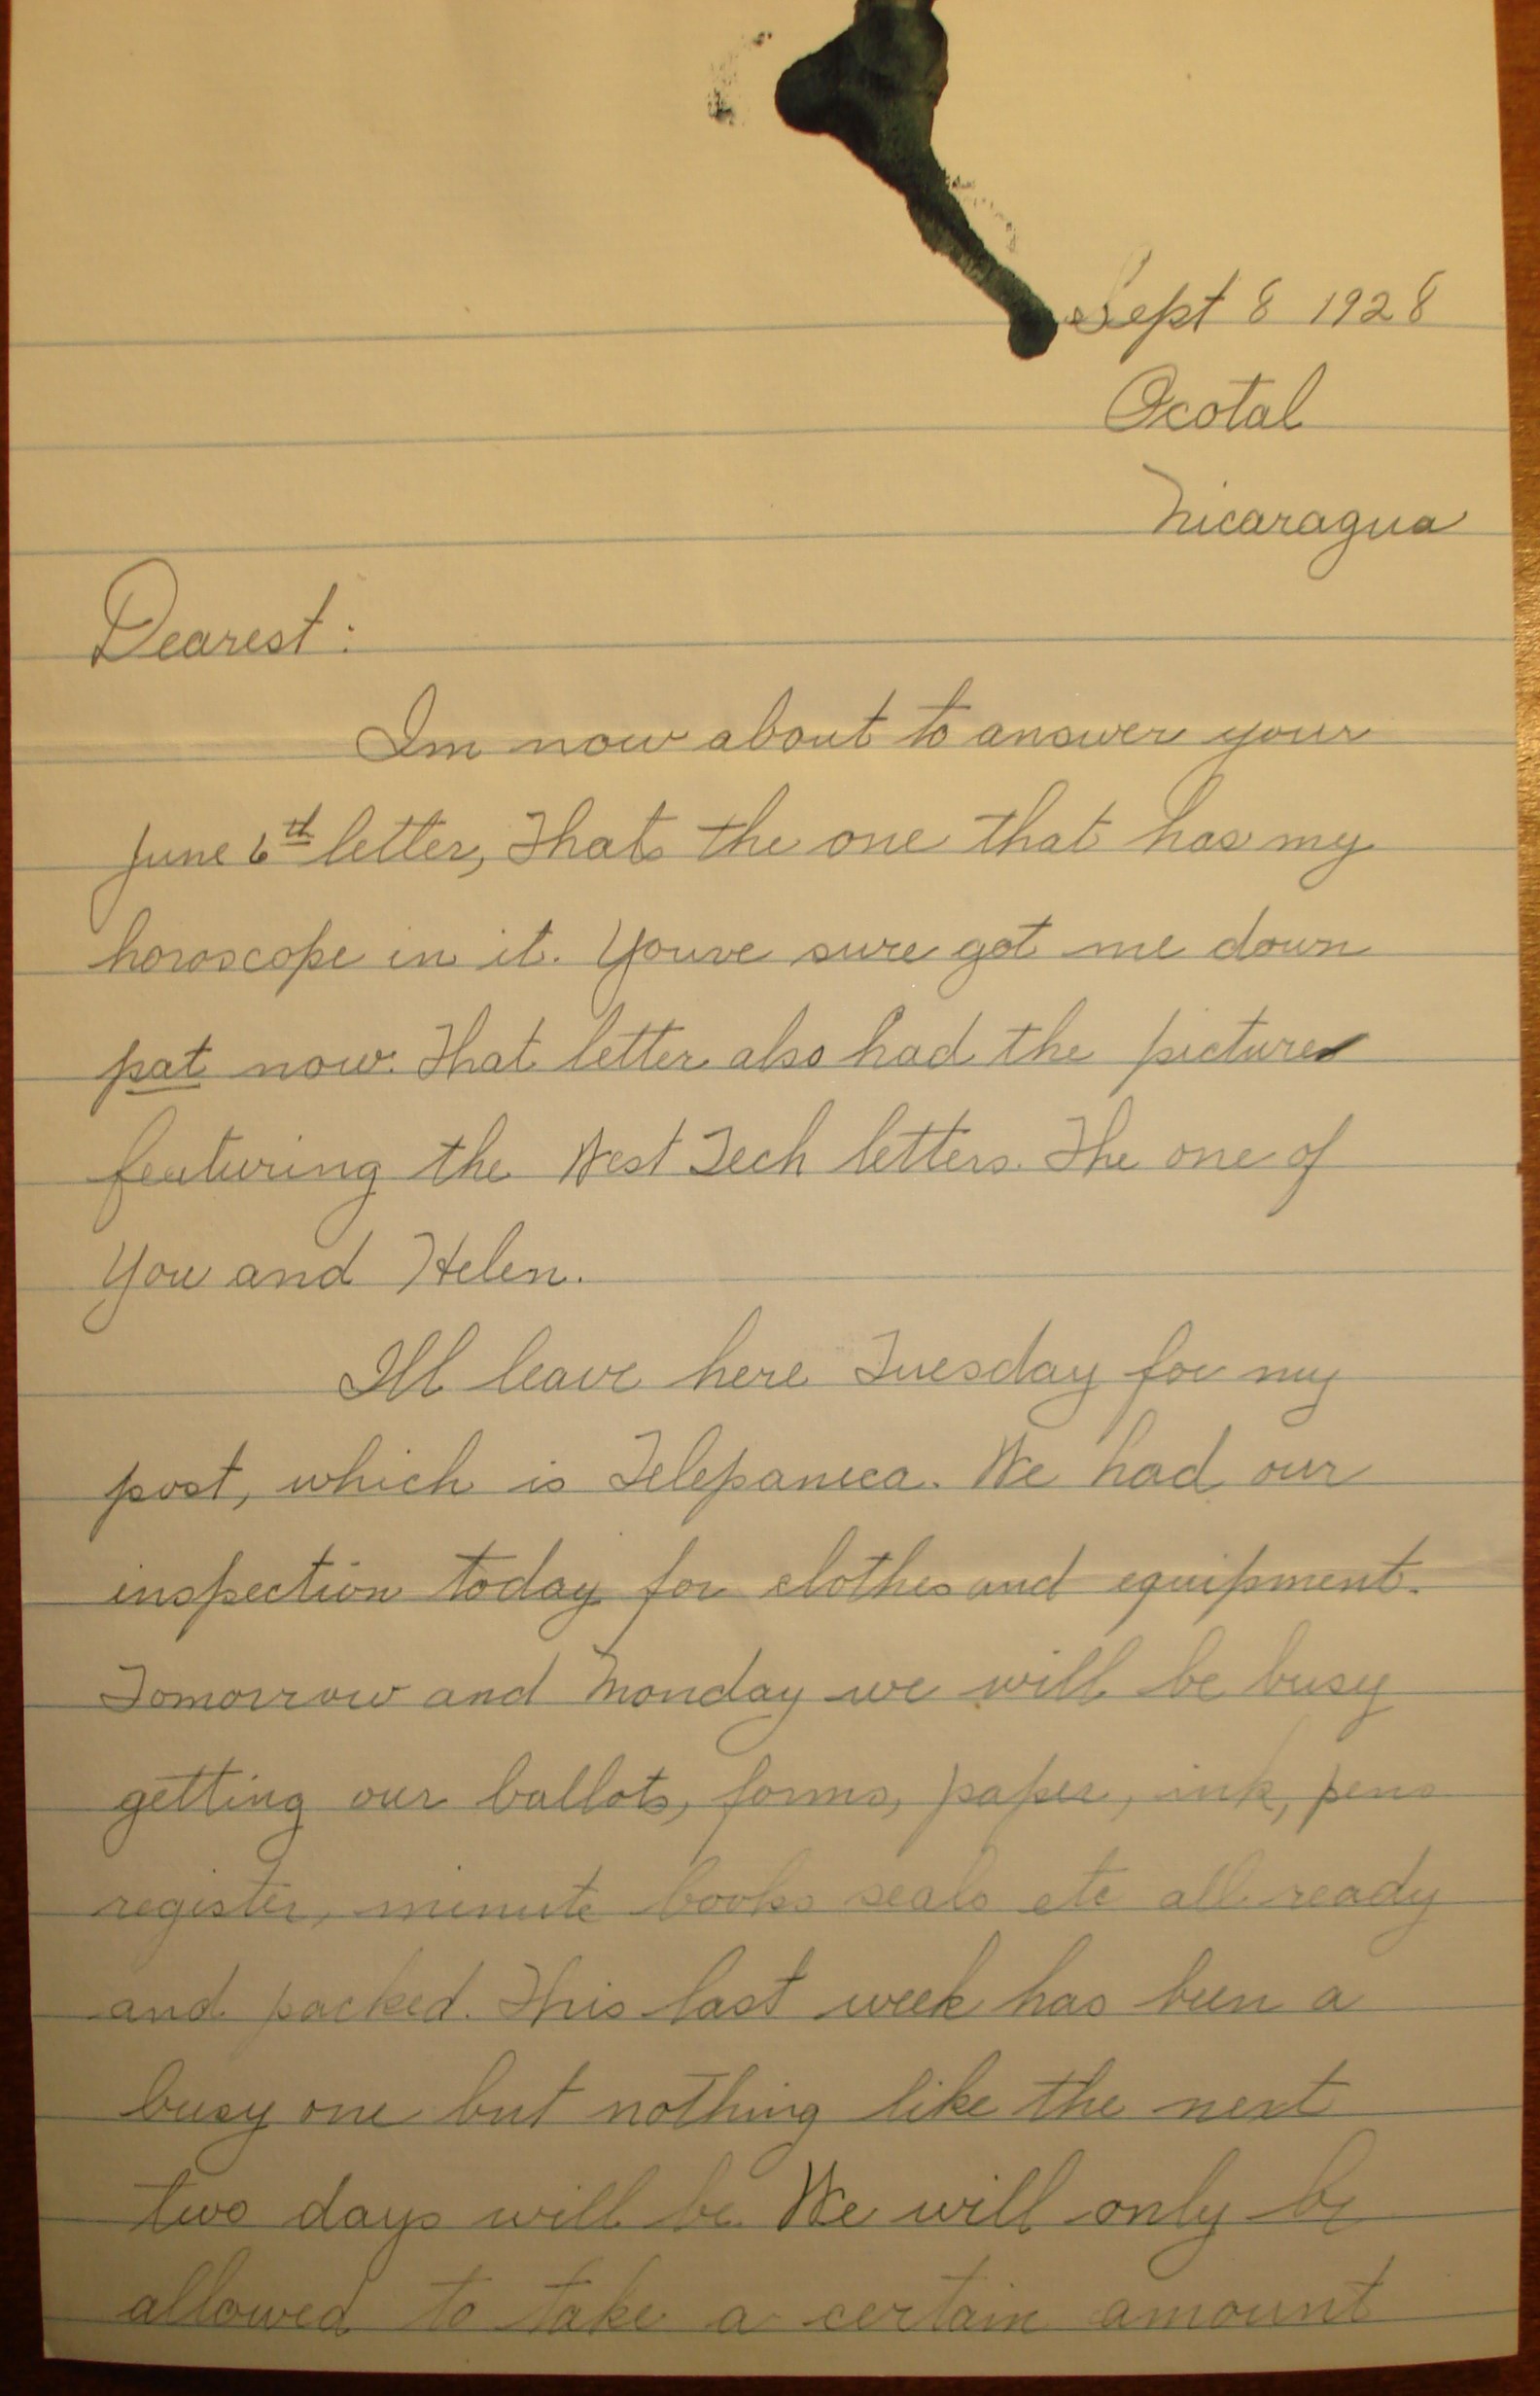 Sept 8 1928
Ocotal
Nicaragua
Dearest:
Im now about to answer your
June 6th letter, Thats the one that has my
horoscope in it. Youve sure got me down
pat now. That letter also had the pictures
featuring the West Tech letters. The one of
You and Helen.
Ill leave here Tuesday for my
post, which is Telepaneca. We had our
inspection today for clothes and equipment.
Tomorrow and Monday we will be busy
getting our ballots, forms, paper, ink, pens
register, minute books seals etc all ready
and packed. This last week has been a
busy one but nothing like the next
two days will be. We will only be
allowed to take a certain amount